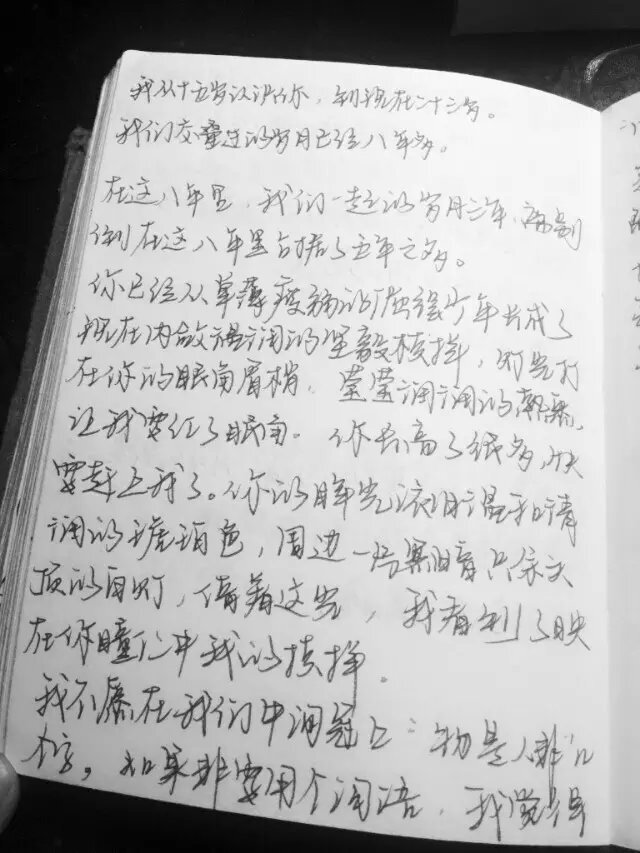 我从十五岁认识你，到现在二十三岁。
我们交叠过的岁月已经八年多。
在这八年里，我们一起的岁月三年，离别
倒在这八年里占据了五年之多。
你已经从单薄瘦弱的少年长成了
现在内敛温润的坚毅模样，灯光打
在你的眼角眉梢，莹莹润润的
让我要红了眼角。你长高了很多，快
要赶上我了。你的眸光依旧温和清
润的琥珀色，周边一片黑暗只余天
顶的白灯，借着这光，我看到了映
在你瞳仁中我的模样。
我不愿在我们中间冠上“物是人非”几
字，如果非要用个词语，我觉得